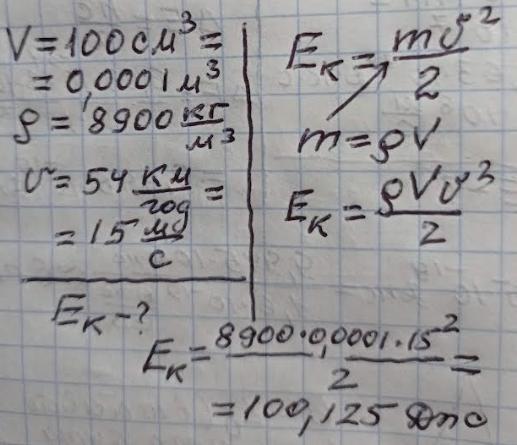 V = 100 см³ =
= 0,0001 м³
ρ = 8900 кг/м³
υ = 54 км/год =
= 15 м/с
Eк - ?
Eк = mυ²/2
m = ρV
Eк = ρVυ³/2
Eк = 8900·0,0001·15²/2 =
= 100,125 Дж